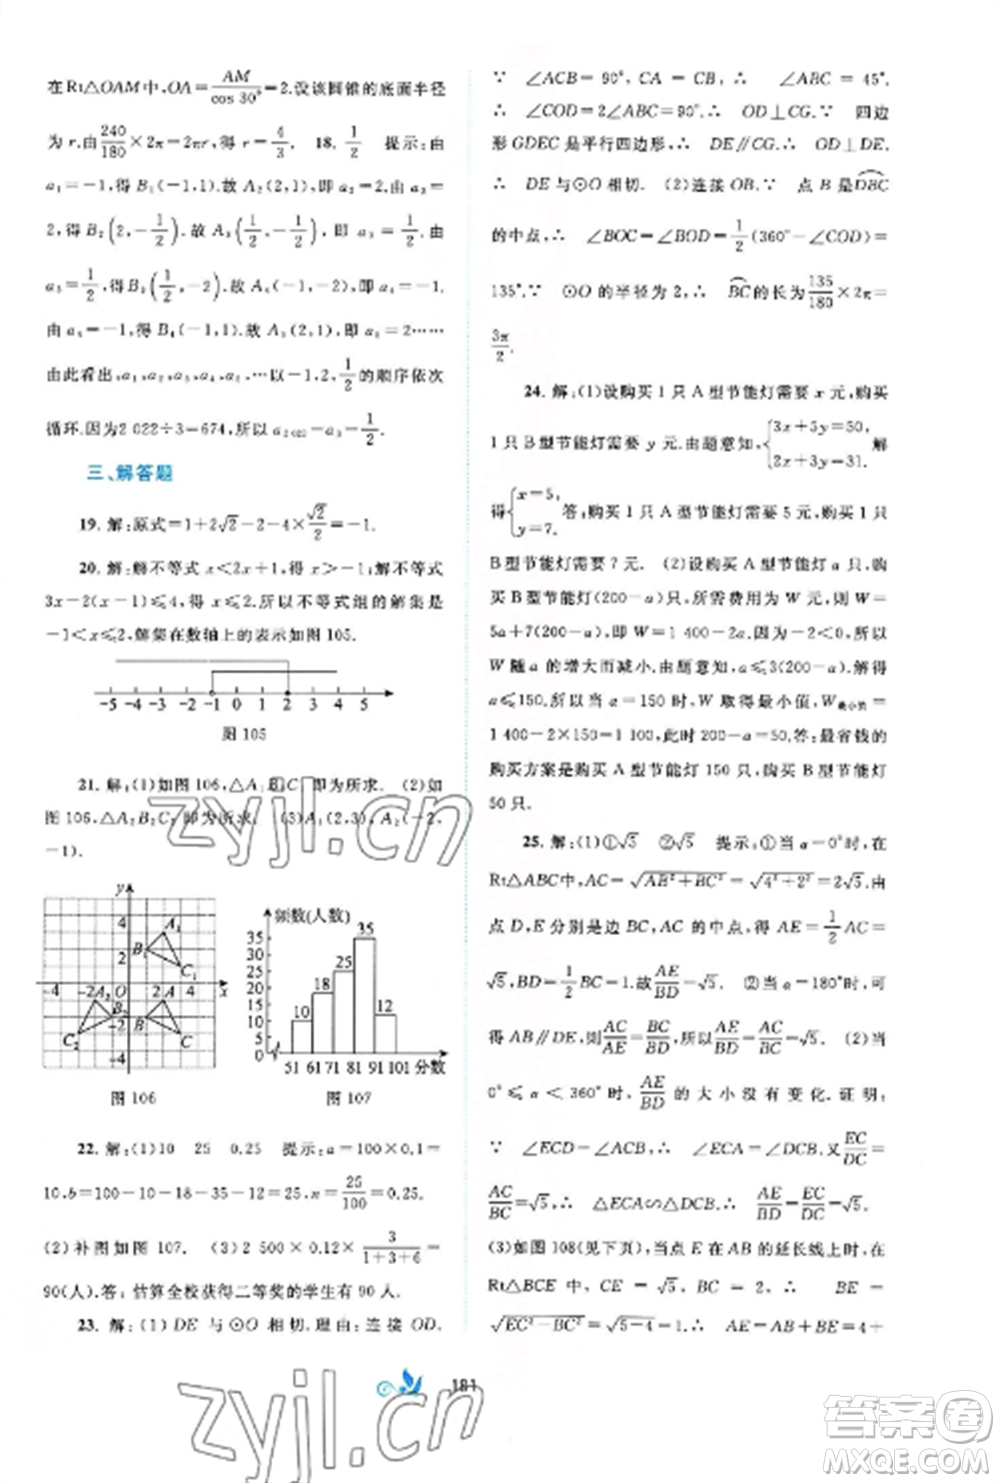 在 Rt△OAM 中,OA=AM/cos 30°=2.设该圆锥的底面半径
为 r.由240/180×2π=2πr,得 r=4/3. 18. 1/2 提示:由
a₁=-1,得 B₁(-1,1).故 A₂(2,1),即 a₂=2.由 a₂=
2,得 B₂(2,-1/2).故 A₃(1/2,-1/2),即 a₃=1/2.由
a₃=1/2,得 B₃(1/2,-2).故 A₄(-1,-2),即 a₄=-1.
由 a₄=-1,得 B₄(-1,1).故 A₅(2,1),即 a₅=2……
由此看出,a₁,a₂,a₃,a₄,a₅,…以-1,2,1/2的顺序依次
循环.因为2 022÷3=674,所以 a₂₀₂₂=a₃=1/2.
三、解答题
19. 解:原式=1+2√2-2-4×√2/2=-1.
20. 解:解不等式 x<2x+1,得 x>-1.解不等式
3x-2(x-1)≤4,得 x≤2.所以不等式组的解集是
-1<x≤2,解集在数轴上的表示如图 105.
-5 -4 -3 -2 -1 0 1 2 3 4 5
图 105
21. 解:(1)如图 106,△A₁B₁C₁即为所求. (2)如
图 106,△A₂B₂C₂即为所求. (3)A₁(2,3),A₂(-2,
-1).
y
4
2
A₁
B₁
C₁
-4 -2 A₂ O 2 A 4 x
B₂
-2
B
C₂
C
-4
图 106
频数(人数)
35
30
25
20
15
10
5
0
10 18 25 35 12
51 61 71 81 91 101 分数
图 107
22. 解:(1)10 25 0.25 提示:a=100×0.1=
10,b=100-10-18-35-12=25,n=25/100=0.25.
(2)补图如图 107. (3)2 500×0.12×3/(1+3+6)=
90(人).答:估算全校获得二等奖的学生有 90 人.
23. 解:(1)DE 与⊙O 相切.理由:连接 OD.
∵ ∠ACB=90°,CA=CB,∴ ∠ABC=45°.
∴ ∠COD=2∠ABC=90°.∴ OD⊥CG.∵ 四边
形 GDEC 是平行四边形,∴ DE∥CG.∴ OD⊥DE.
∴ DE 与⊙O 相切. (2)连接 OB.∵ 点 B 是DBC
的中点,∴ ∠BOC=∠BOD=1/2(360°-∠COD)=
135°.∵ ⊙O 的半径为 2,∴ BC的长为135/180×2π=
3π/2.
24. 解:(1)设购买 1 只 A 型节能灯需要 x 元,购买
1 只 B 型节能灯需要 y 元.由题意知,{3x+5y=50, 2x+3y=31. 解
得{x=5, y=7. 答:购买 1 只 A 型节能灯需要 5 元,购买 1 只
B 型节能灯需要 7 元. (2)设购买 A 型节能灯 a 只,则购
买 B 型节能灯(200-a)只,所需费用为 W 元,则 W=
5a+7(200-a),即 W=1 400-2a.因为-2<0,所以
W 随 a 的增大而减小.由题意知,a≤3(200-a).解得
a≤150.所以当 a=150 时,W 取得最小值,W最小值=
1 400-2×150=1 100.此时 200-a=50.答:最省钱的
购买方案是购买 A 型节能灯 150 只,购买 B 型节能灯
50 只.
25. 解:(1)①√5 ②√5 提示:①当 α=0°时,在
Rt△ABC中,AC=√(AB²+BC²)=√(4²+2²)=2√5.由
点 D,E 分别是边 BC,AC 的中点,得 AE=1/2AC=
√5,BD=1/2BC=1.故AE/BD=√5. ②当 α=180°时,可
得 AB∥DE.所以AC/AE=BC/BD.故AE/BD=AC/BC=√5. (2)当
0°≤α<360°时,AE/BD 的大小没有变化.证明:
∵ ∠ECD=∠ACB,∴ ∠ECA=∠DCB.又EC/DC=
AC/BC=√5,∴ △ECA∽△DCB.∴ AE/BD=EC/DC=√5.
(3)如图 108(见下页),当点 E 在 AB 的延长线上时,在
Rt△BCE 中,CE=√5,BC=2,∴ BE=
√(EC²-BC²)=√(5-4)=1.∴ AE=AB+BE=4+
181
zyjl.cn
zyjl.cn
答案圈
MXQE.COM